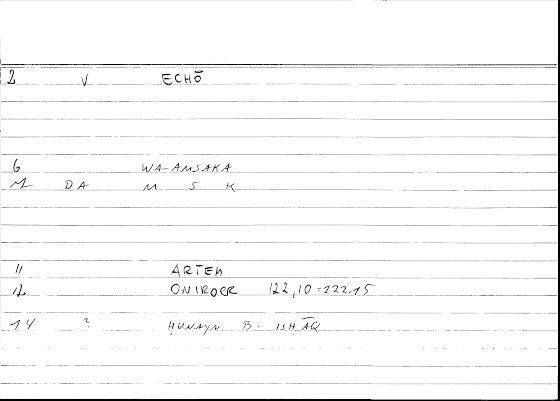 2 V ECHŌ
6 WA-AMSAKA
M DA M S K
11 ARTEM
12 ONIROCR 122,10=222.15
14 ? ḤUNAYN B. ISḤĀQ